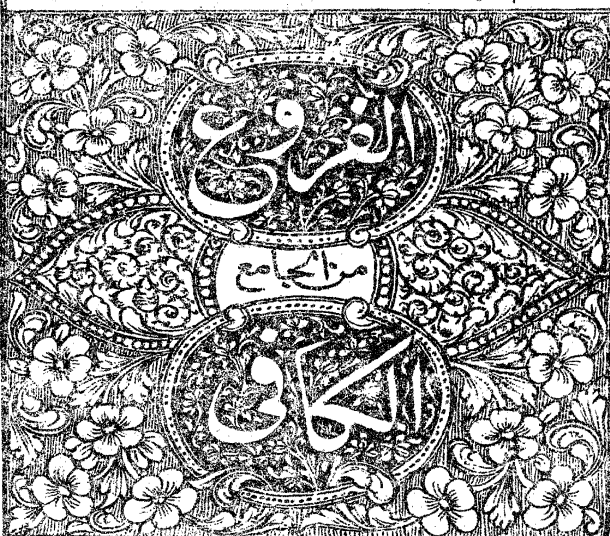 الفروع
من الجامع
الكافي